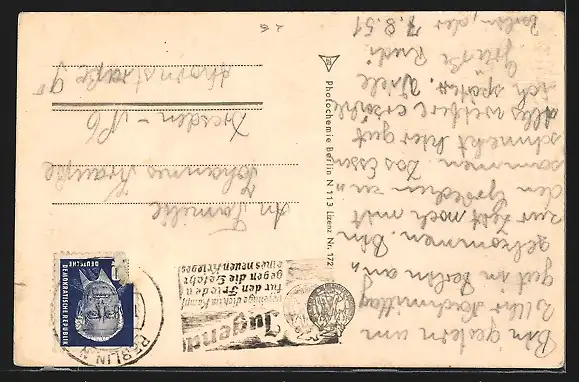 Berlin, den 7.8.51
Bin gestern um
2 Uhr Nachmittag
gut in Berlin an-
gekommen. Bin
zur Zeit noch mit
den Mädchen zu-
sammen. Das Essen
schmeckt hier gut
alles weitere erzähle
ich später. Viele
Grüße Rudi
Photochemie Berlin N 113 Lizenz Nr. 172
Jugend
vereinige dich im Kampf
für den Frieden
gegen die Gefahr
eines neuen Krieges!
BERLIN N
DEUTSCHE
DEMOKRATISCHE REPUBLIK
An Familie
Johannes Krauße
Dresden - N6